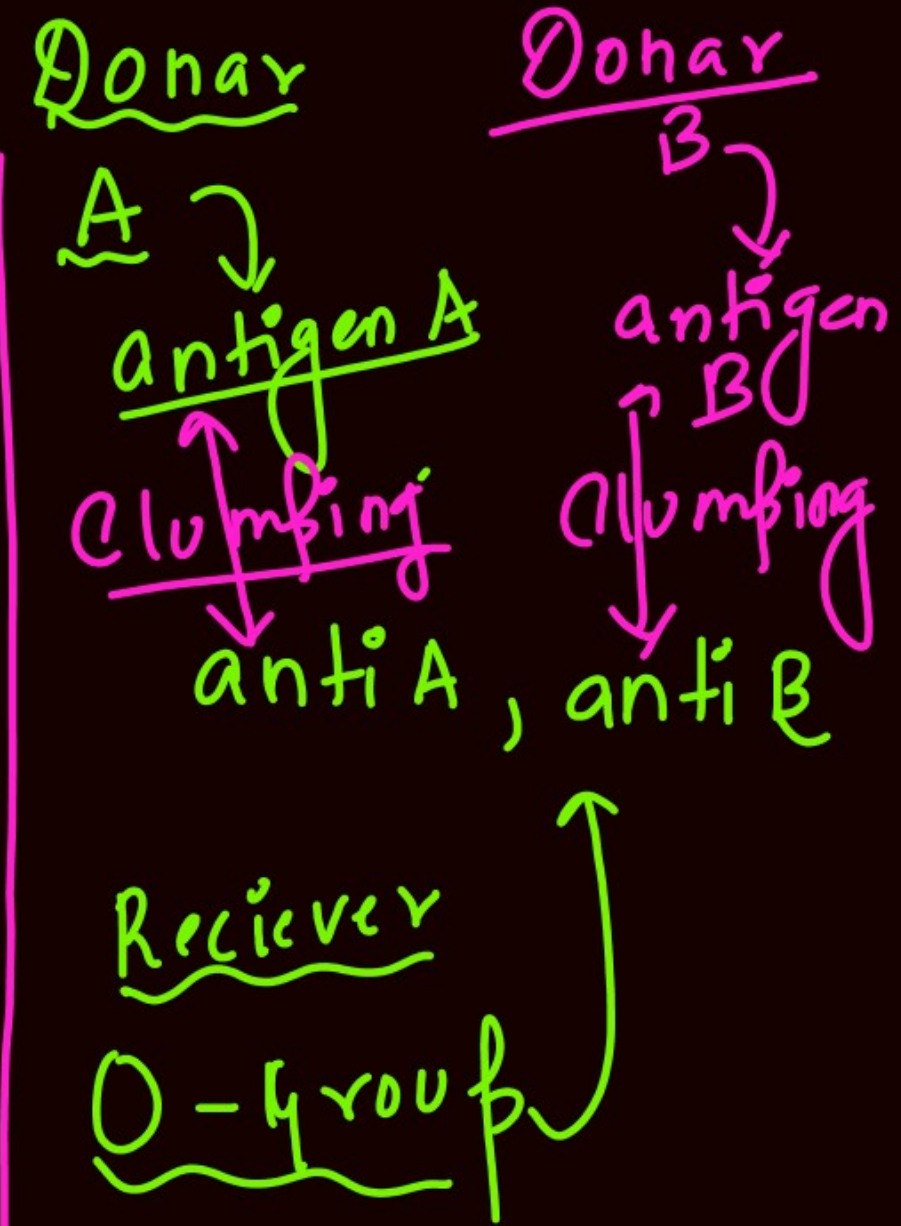 Donar
A
antigen A
Clumping
Donar
B
antigen
B
Clumping
anti A , anti B
Reciever
O - Group